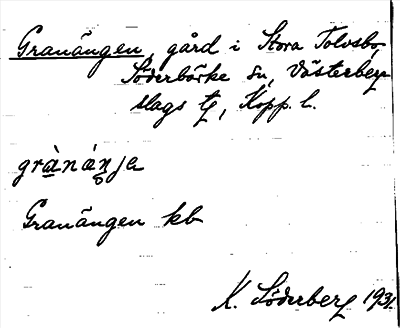 Granängen, gård i Stora Tolvsbo,
Söderbärke sn, Västerberg-
slags tg, Kopp. l.
grànáŋa
Granängen kb
K. Söderberg 1931.